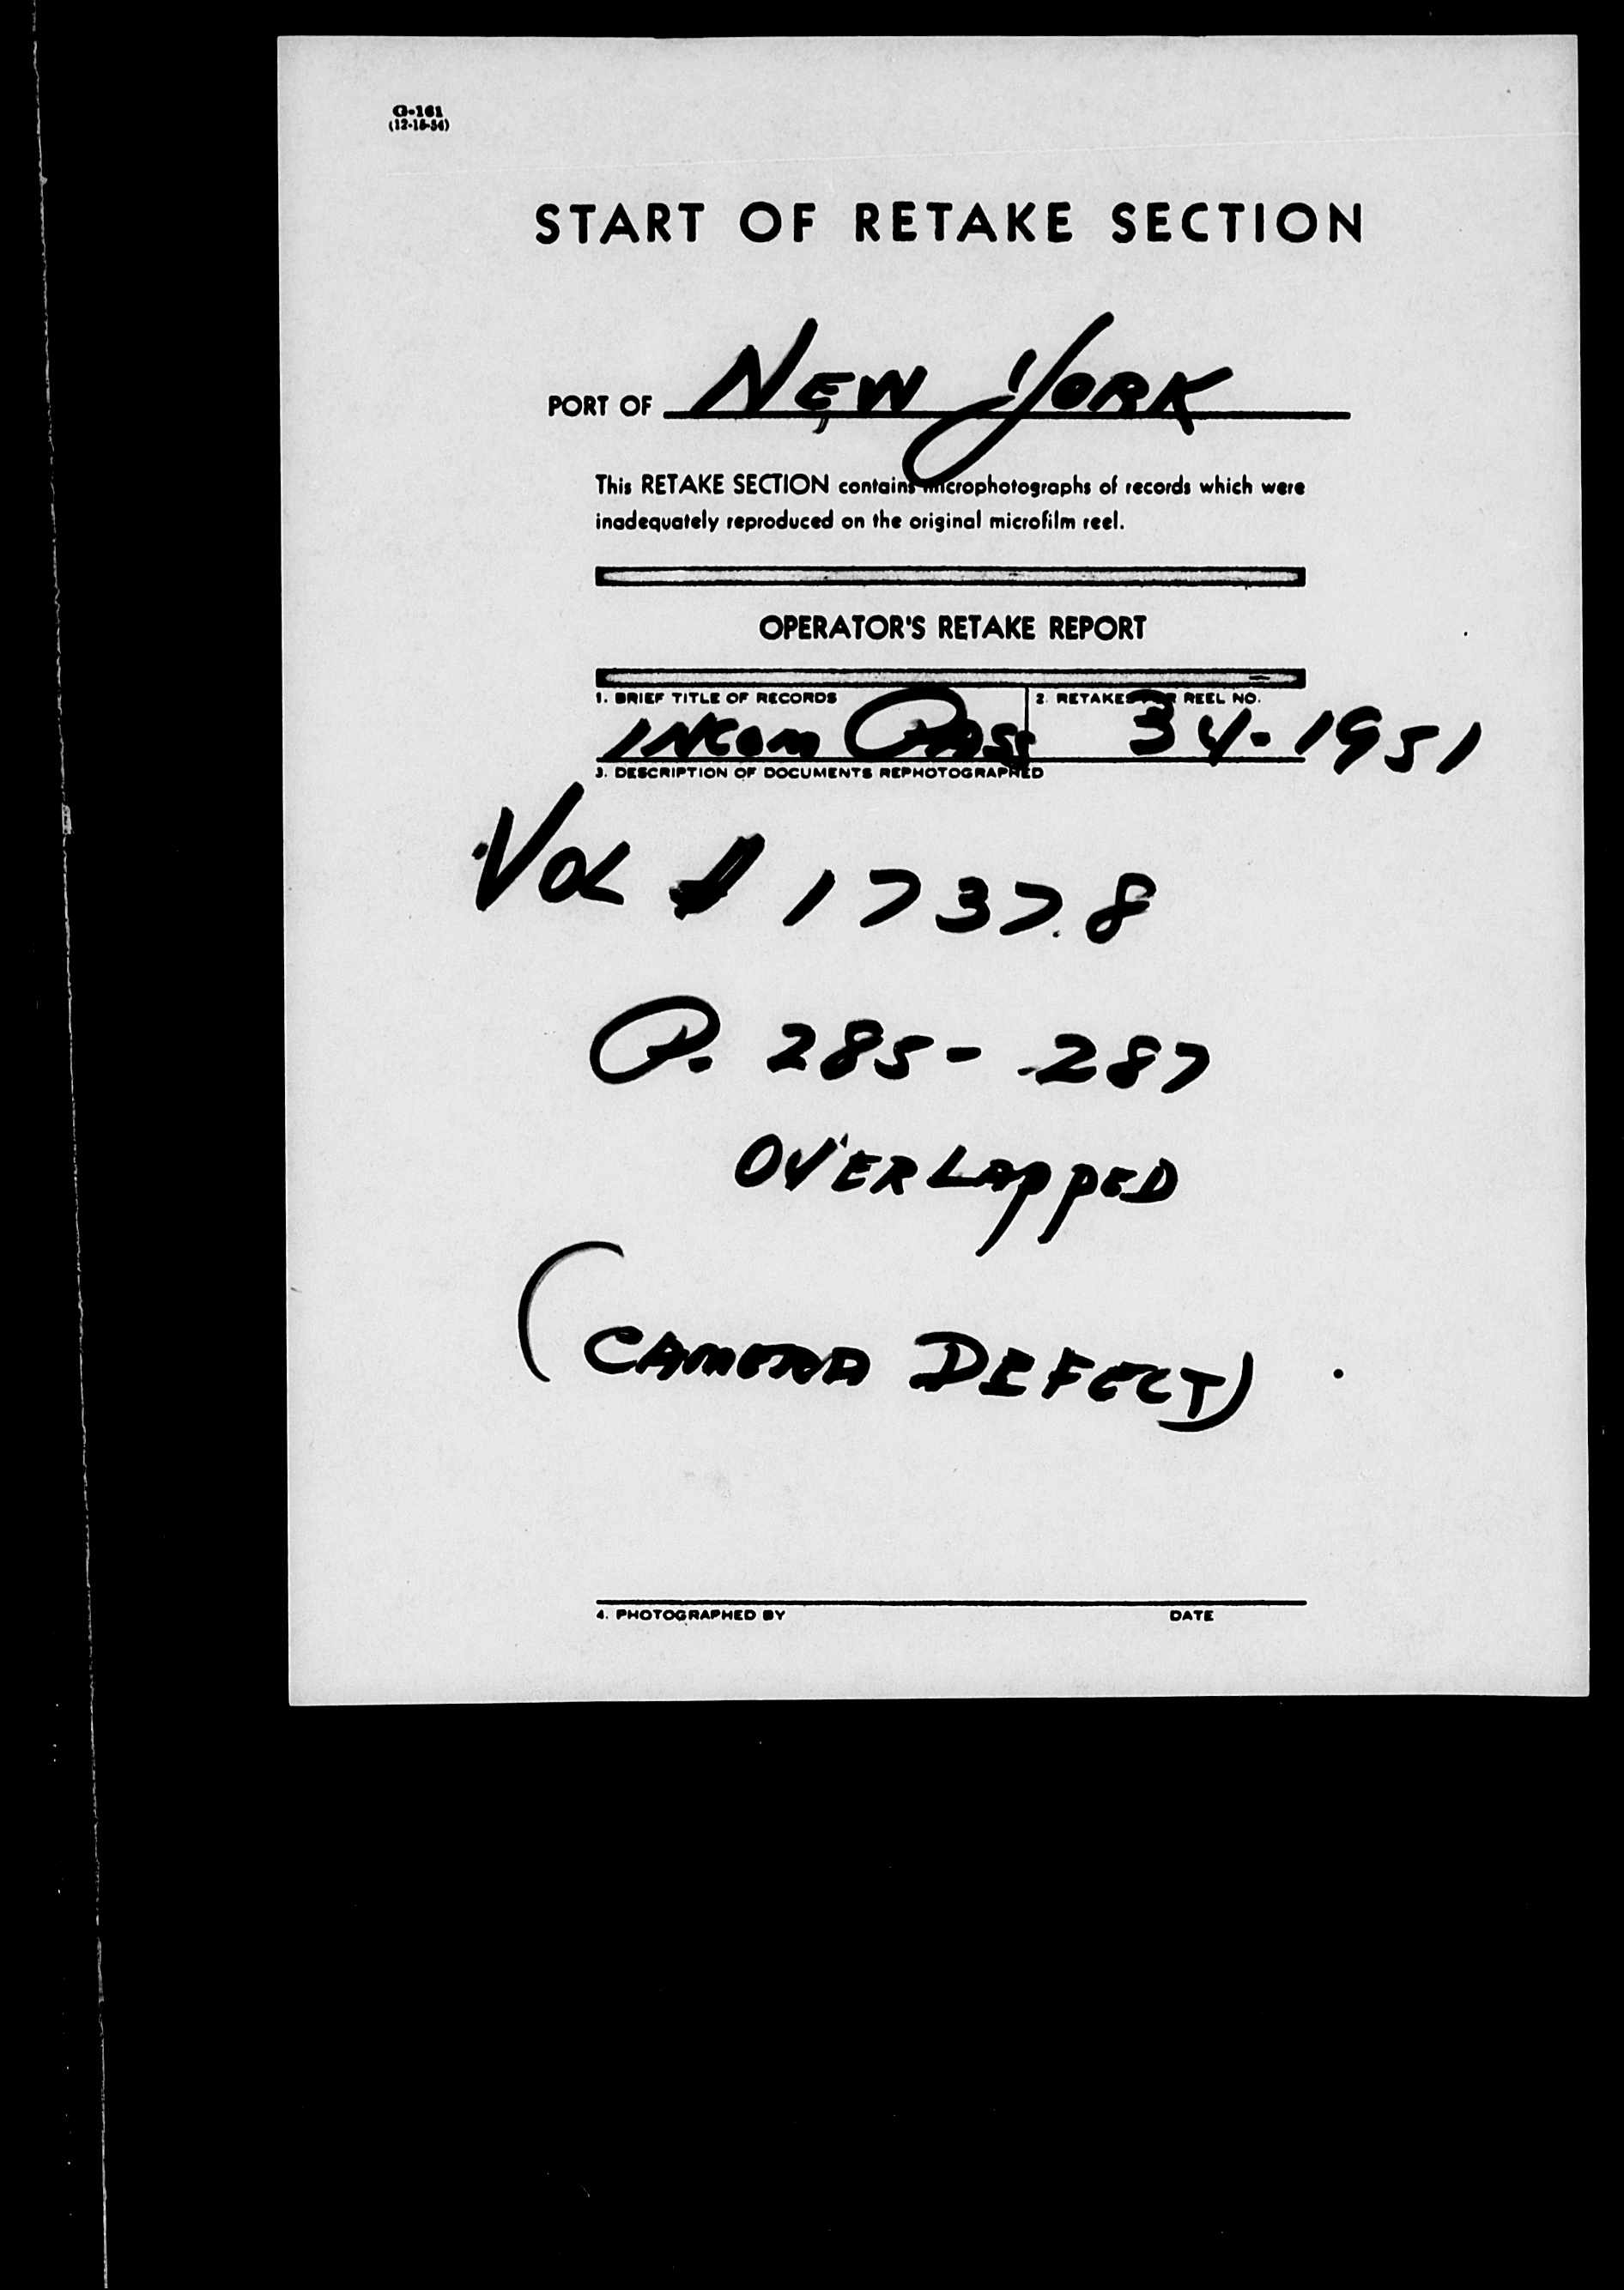 G-161
(12-15-54)
START OF RETAKE SECTION
PORT OF NEW YORK
This RETAKE SECTION contains microphotographs of records which were
inadequately reproduced on the original microfilm reel.
OPERATOR'S RETAKE REPORT
1. BRIEF TITLE OF RECORDS 2. RETAKES FOR REEL NO.
INCOM PASS 34-1951
3. DESCRIPTION OF DOCUMENTS REPHOTOGRAPHED
VOL # 17378
P. 285-287
OVERLAPPED
(CAMERA DEFECT)
4. PHOTOGRAPHED BY DATE